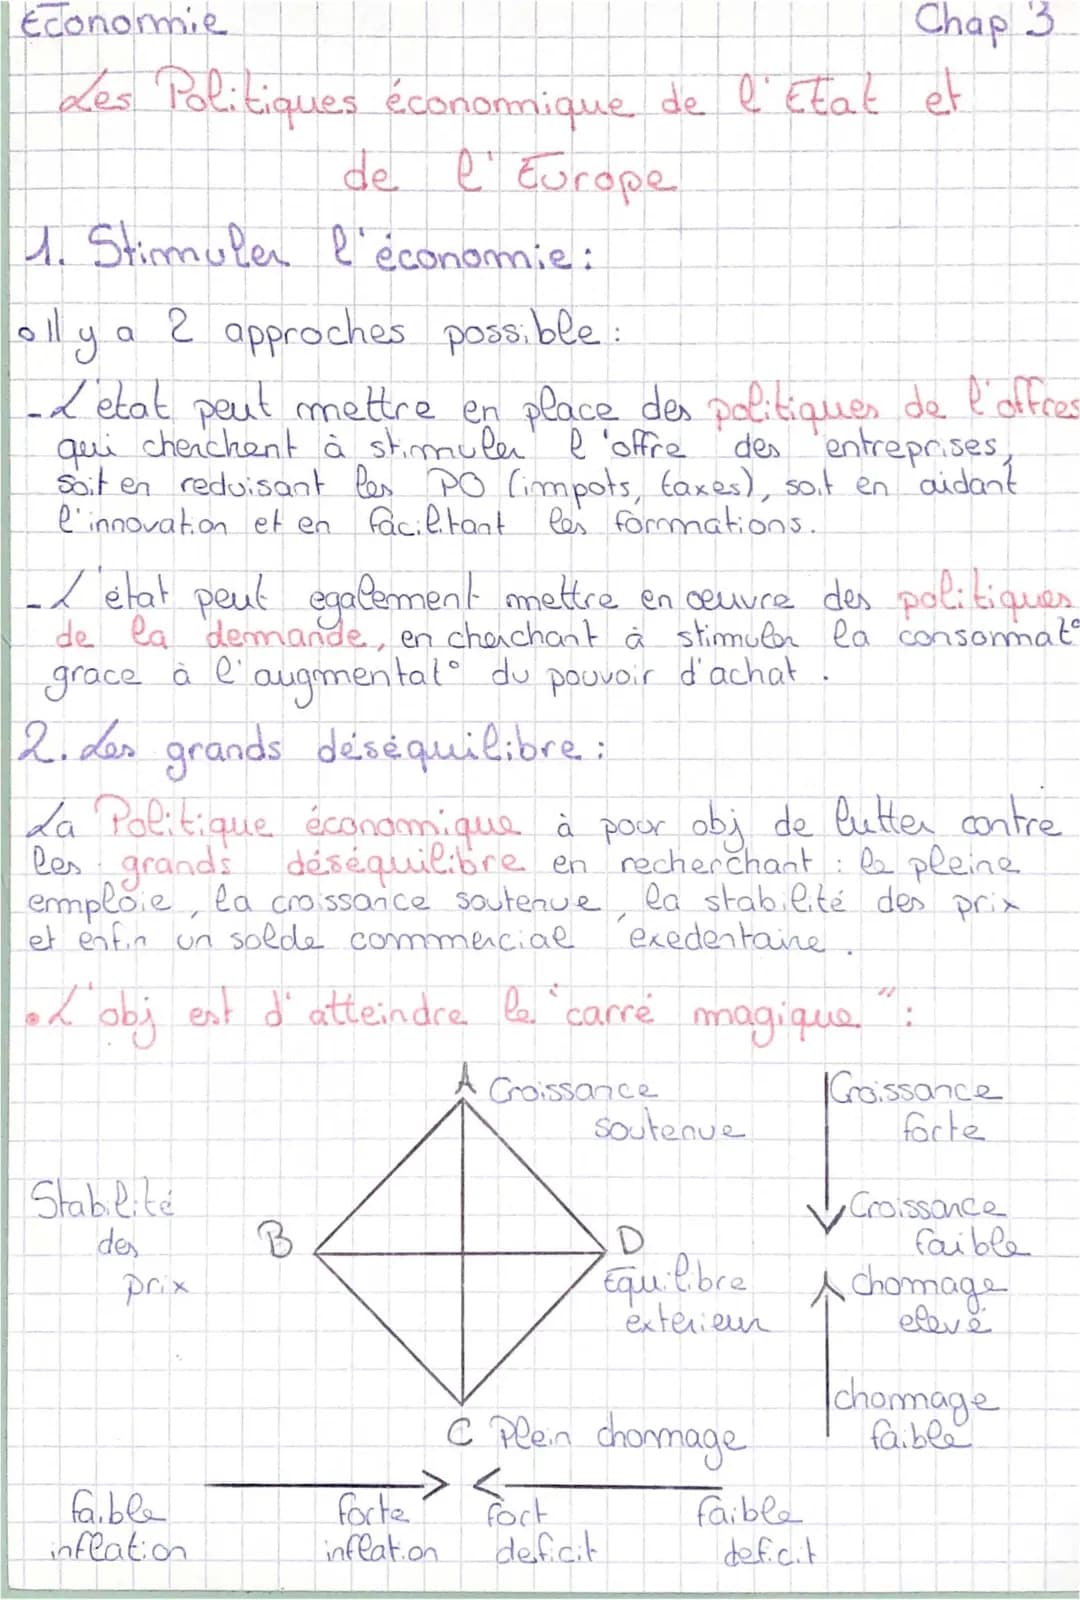 Economie Chap 3
Les Politiques économique de l'Etat et
de l'Europe
1. Stimuler l'économie :
Il y a 2 approches possible :
- L'etat peut mettre en place des politiques de l'offres
qui cherchent à stimuler l'offre des entreprises,
soit en reduisant les PO (impots, taxes), soit en aidant
l'innovation et en facilitant les formations.
- L'état peut egalement mettre en œuvre des politiques
de la demande, en cherchant à stimuler la consommat°
grace à l'augmentat° du pouvoir d'achat.
2. Les grands déséquilibre :
La Politique économique à pour obj de lutter contre
les grands déséquilibre en recherchant : le pleine
emploie, la croissance soutenue, la stabilité des prix
et enfin un solde commercial exedentaire.
• L'obj est d'atteindre le "carré magique" :
A Croissance
soutenue
Croissance
forte
Stabilité
des
prix
B
D
Equilibre
exterieur
Croissance
faible
chomage
elevé
chommage
faible
C Plein chommage
faible
inflation
forte
inflation
fort
deficit
faible
deficit